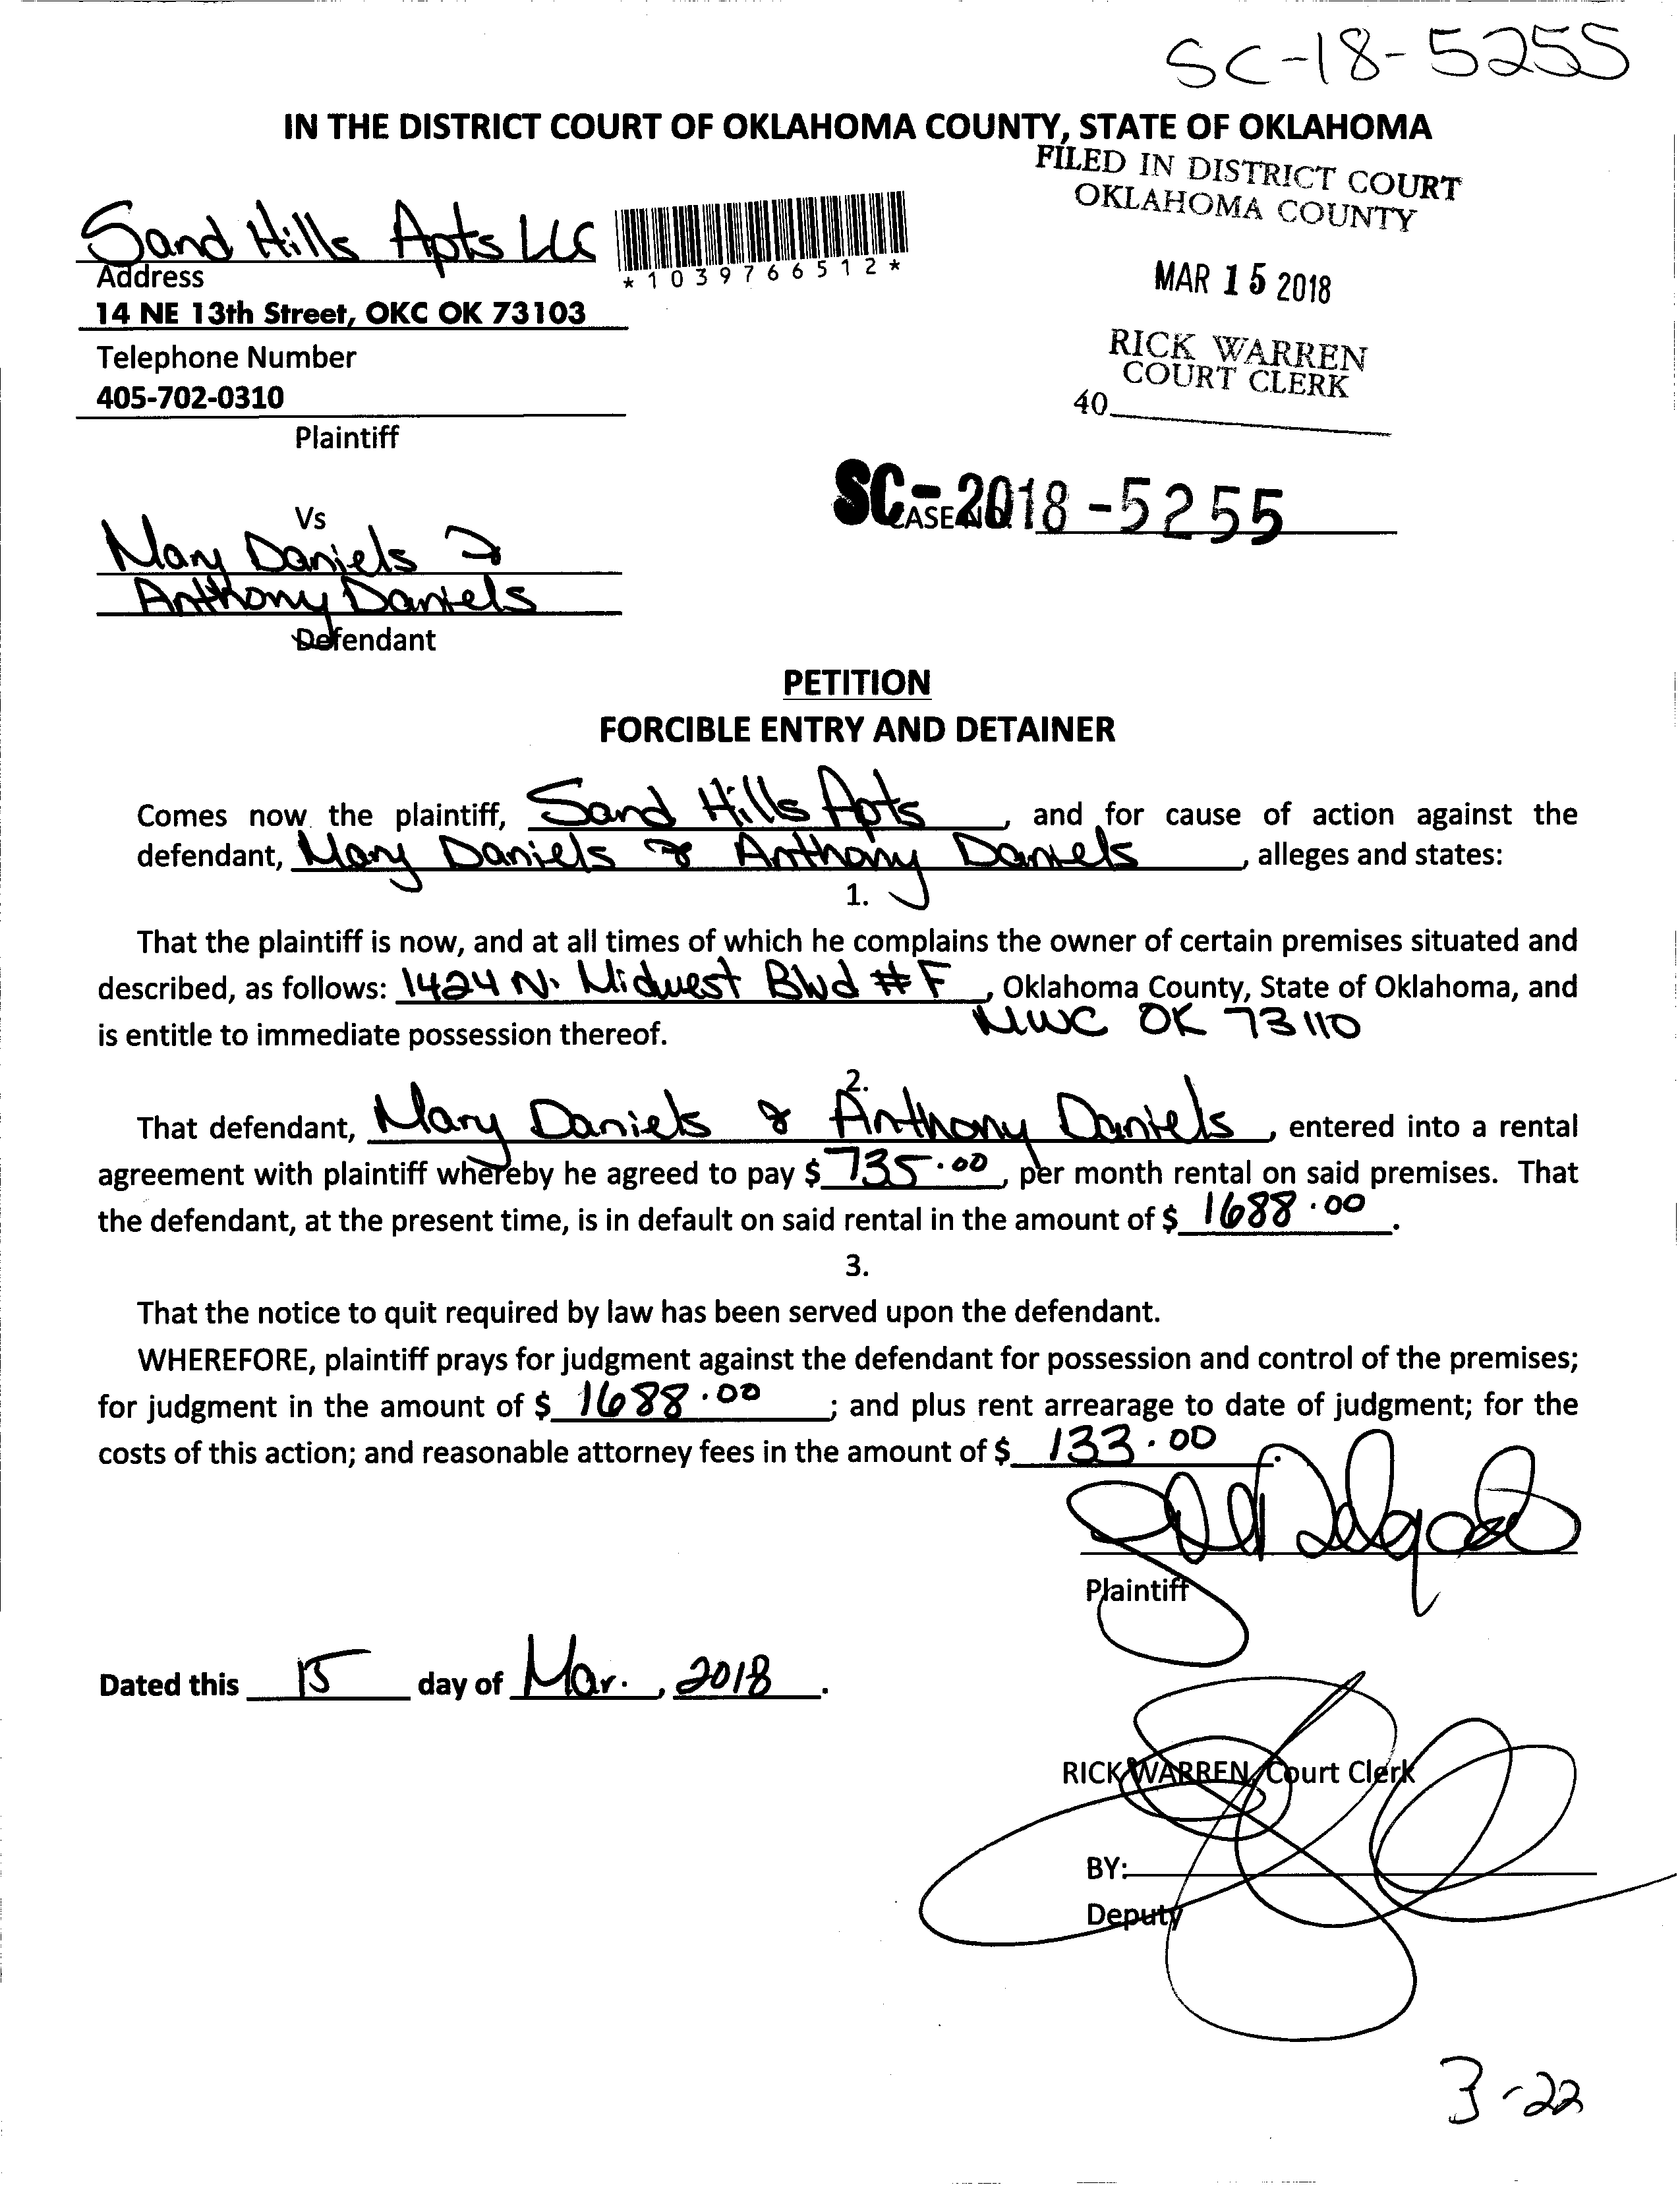 SC-18-5255
IN THE DISTRICT COURT OF OKLAHOMA COUNTY, STATE OF OKLAHOMA
FILED IN DISTRICT COURT
OKLAHOMA COUNTY
Sand Hills Apts LLC
*1039766512*
Address
14 NE 13th Street, OKC OK 73103
MAR 15 2018
Telephone Number
405-702-0310
RICK WARREN
COURT CLERK
40
Plaintiff
SC-2018-5255
CASE NO.
Vs
Mary Daniels &
Anthony Daniels
Defendant
PETITION
FORCIBLE ENTRY AND DETAINER
Comes now the plaintiff, Sand Hills Apts, and for cause of action against the
defendant, Mary Daniels & Anthony Daniels, alleges and states:
1.
That the plaintiff is now, and at all times of which he complains the owner of certain premises situated and
described, as follows: 1424 N. Midwest Blvd #F, Oklahoma County, State of Oklahoma, and
MWC OK 73110
is entitle to immediate possession thereof.
2.
That defendant, Mary Daniels & Anthony Daniels, entered into a rental
agreement with plaintiff whereby he agreed to pay $ 735.00, per month rental on said premises. That
the defendant, at the present time, is in default on said rental in the amount of $ 1688.00.
3.
That the notice to quit required by law has been served upon the defendant.
WHEREFORE, plaintiff prays for judgment against the defendant for possession and control of the premises;
for judgment in the amount of $ 1688.00; and plus rent arrearage to date of judgment; for the
costs of this action; and reasonable attorney fees in the amount of $ 133.00.
Plaintiff
Dated this 15 day of Mar., 2018.
RICK WARREN, Court Clerk
BY:
Deputy
3-22